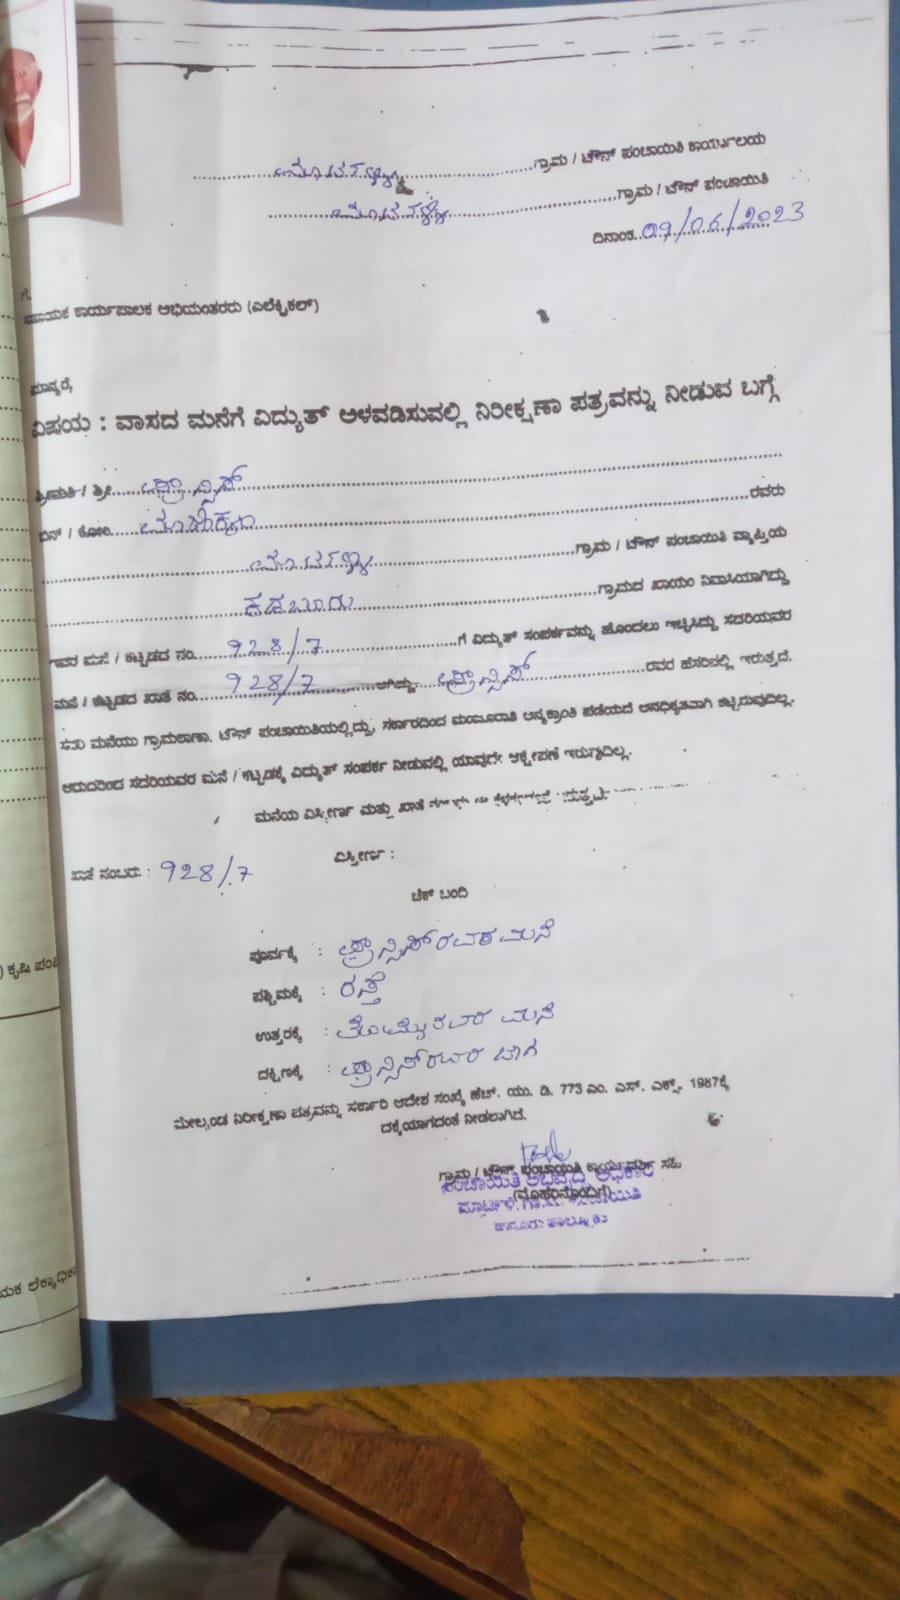 ಗ್ರಾಮ / ಟೌನ್ ಪಂಚಾಯಿತಿ ಕಾರ್ಯಾಲಯ
ಗ್ರಾಮ / ಟೌನ್ ಪಂಚಾಯಿತಿ
ದಿನಾಂಕ..09/06/2023
ಗೆ.
ಸಹಾಯಕ ಕಾರ್ಯಪಾಲಕ ಅಭಿಯಂತರರು (ಎಲೆಕ್ಟ್ರಿಕಲ್)
ಮಾನ್ಯರೆ,
ವಿಷಯ : ವಾಸದ ಮನೆಗೆ ವಿದ್ಯುತ್ ಅಳವಡಿಸುವಲ್ಲಿ ನಿರೀಕ್ಷಣಾ ಪತ್ರವನ್ನು ನೀಡುವ ಬಗ್ಗೆ
ಶ್ರೀಮತಿ / ಶ್ರೀ.... ಫ್ರಾನ್ಸಿಸ್
ಬಿನ್ / ಕೋಂ.... ರವರು
ಗ್ರಾಮ / ಟೌನ್ ಪಂಚಾಯಿತಿ ವ್ಯಾಪ್ತಿಯ
ಕಡಬೂರು ಗ್ರಾಮದ ಖಾಯಂ ನಿವಾಸಿಯಾಗಿದ್ದು
ಇವರ ಮನೆ / ಕಟ್ಟಡದ ನಂ. 928/7 ಗೆ ವಿದ್ಯುತ್ ಸಂಪರ್ಕವನ್ನು ಹೊಂದಲು ಇಚ್ಛಿಸಿದ್ದು ಸದರಿಯವರ
ಮನೆ / ಕಟ್ಟಡದ ಖಾತೆ ನಂ. 928/7 ಆಗಿದ್ದು. ಫ್ರಾನ್ಸಿಸ್ ರವರ ಹೆಸರಿನಲ್ಲಿ ಇರುತ್ತದೆ.
ಸದರಿ ಮನೆಯು ಗ್ರಾಮಠಾಣಾ. ಟೌನ್ ಪಂಚಾಯಿತಿಯಲ್ಲಿದ್ದು, ಸರ್ಕಾರದಿಂದ ಮಂಜೂರಾತಿ ಅನ್ಯಕ್ರಾಂತಿ ಪಡೆಯದೆ ಅನಧಿಕೃತವಾಗಿ ಕಟ್ಟಿರುವುದಿಲ್ಲ.
ಆದುದರಿಂದ ಸದರಿಯವರ ಮನೆ / ಕಟ್ಟಡಕ್ಕೆ ವಿದ್ಯುತ್ ಸಂಪರ್ಕ ನೀಡುವಲ್ಲಿ ಯಾವುದೇ ಆಕ್ಷೇಪಣೆ ಇರುವುದಿಲ್ಲ.
ಮನೆಯ ವಿಸ್ತೀರ್ಣ ಮತ್ತು ಖಾತೆ
ಖಾತೆ ನಂಬರು : 928/7 ವಿಸ್ತೀರ್ಣ :
ಚೆಕ್ ಬಂದಿ
ಪೂರ್ವಕ್ಕೆ : ಫ್ರಾನ್ಸಿಸ್ ರವರ ಮನೆ
ಪಶ್ಚಿಮಕ್ಕೆ : ರಸ್ತೆ
ಉತ್ತರಕ್ಕೆ : ತೋಮ್ಯೊರವರ ಮನೆ
ದಕ್ಷಿಣಕ್ಕೆ : ಫ್ರಾನ್ಸಿಸ್ ರವರ ಜಾಗ
ಮೇಲ್ಕಂಡ ನಿರೀಕ್ಷಣಾ ಪತ್ರವನ್ನು ಸರ್ಕಾರಿ ಆದೇಶ ಸಂಖ್ಯೆ ಹೆಚ್. ಯು. ಡಿ. 773 ಎಂ. ಎಸ್. ಎಕ್ಸ್. 1987ಕ್ಕೆ
ದಕ್ಕೆಯಾಗದಂತೆ ನೀಡಲಾಗಿದೆ.
ಗ್ರಾಮ / ಟೌನ್ ಪಂಚಾಯಿತಿ ಕಾರ್ಯದರ್ಶಿ ಸಹಿ
ಪಂಚಾಯಿತಿ ಅಭಿವೃದ್ಧಿ ಅಧಿಕಾರಿ
(ಮೊಹರಿನೊಂದಿಗೆ)
ಹನೂರು ತಾಲ್ಲೂಕು
) ಕೃಷಿ ಪಂಪ್